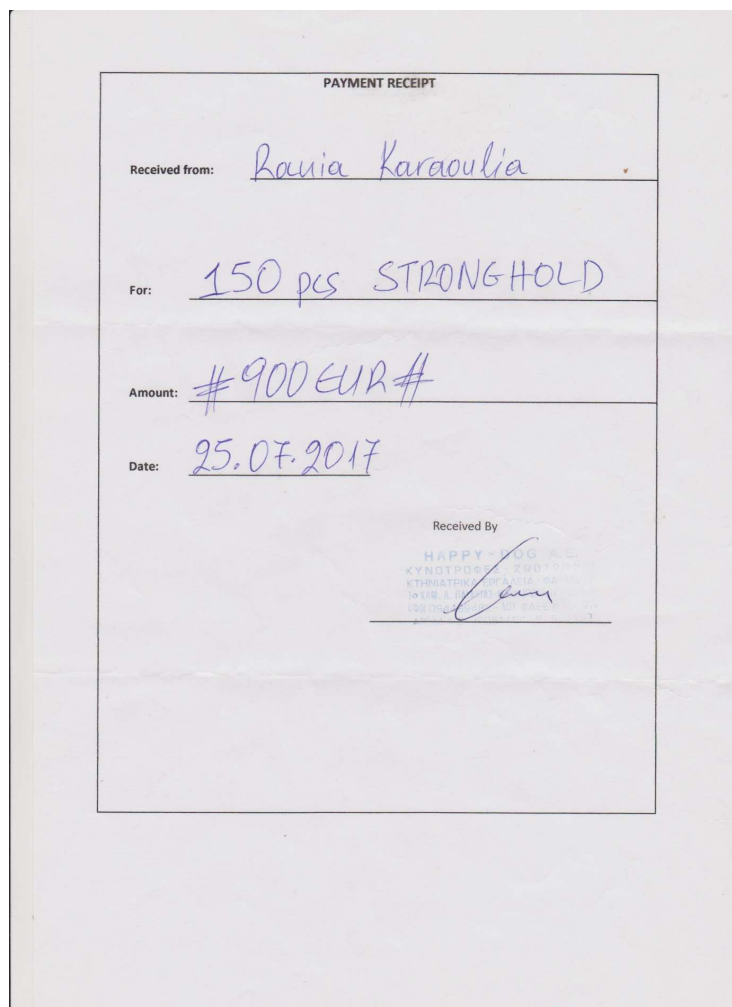 PAYMENT RECEIPT
Received from: Rania Karaoulia
For: 150 pcs STRONGHOLD
Amount: #900 EUR#
Date: 25.07.2017
Received By
HAPPY-DOG A.E.
ΚΥΝΟΤΡΟΦΕΣ
ΚΤΗΝΙΑΤΡΙΚΑ ΕΡΓΑΛΕΙΑ